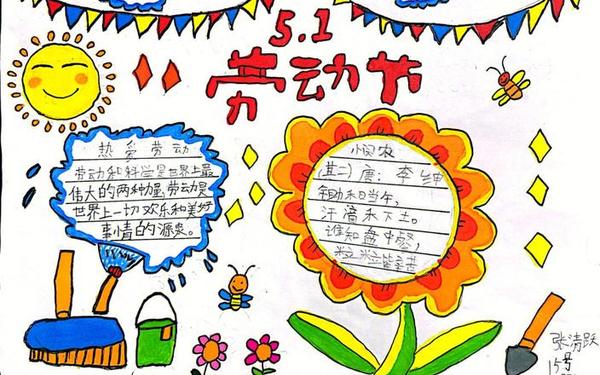 5.1
劳动节
热爱劳动
劳动和科学是世界上最
伟大的两种力量,劳动是
世界上一切欢乐和美好
事情的源泉。
悯农
(其二) 唐:李绅
锄禾日当午,
汗滴禾下土。
谁知盘中餐,
粒粒皆辛苦
张清跃
15号